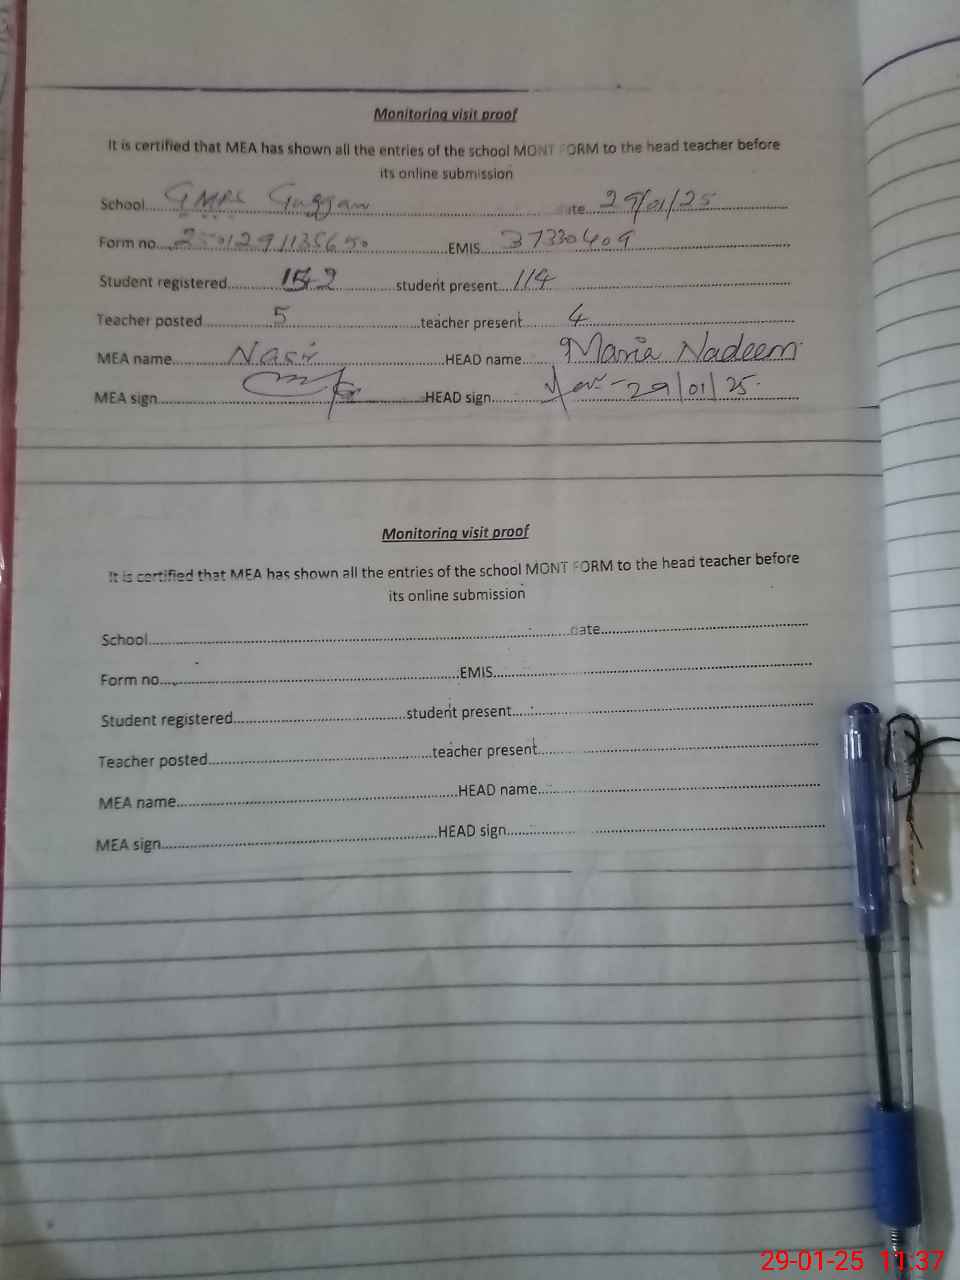 Monitoring visit proof
It is certified that MEA has shown all the entries of the school MONT FORM to the head teacher before
its online submission
School GMPS Gujjan date 29/01/25
Form no EMIS 37330409
Student registered 152 student present 114
Teacher posted 5 teacher present 4
MEA name Nasir HEAD name Maria Nadeem
MEA sign HEAD sign 29/01/25
Monitoring visit proof
It is certified that MEA has shown all the entries of the school MONT FORM to the head teacher before
its online submission
School date
Form no EMIS
Student registered student present
Teacher posted teacher present
MEA name HEAD name
MEA sign HEAD sign
29-01-25 11:37